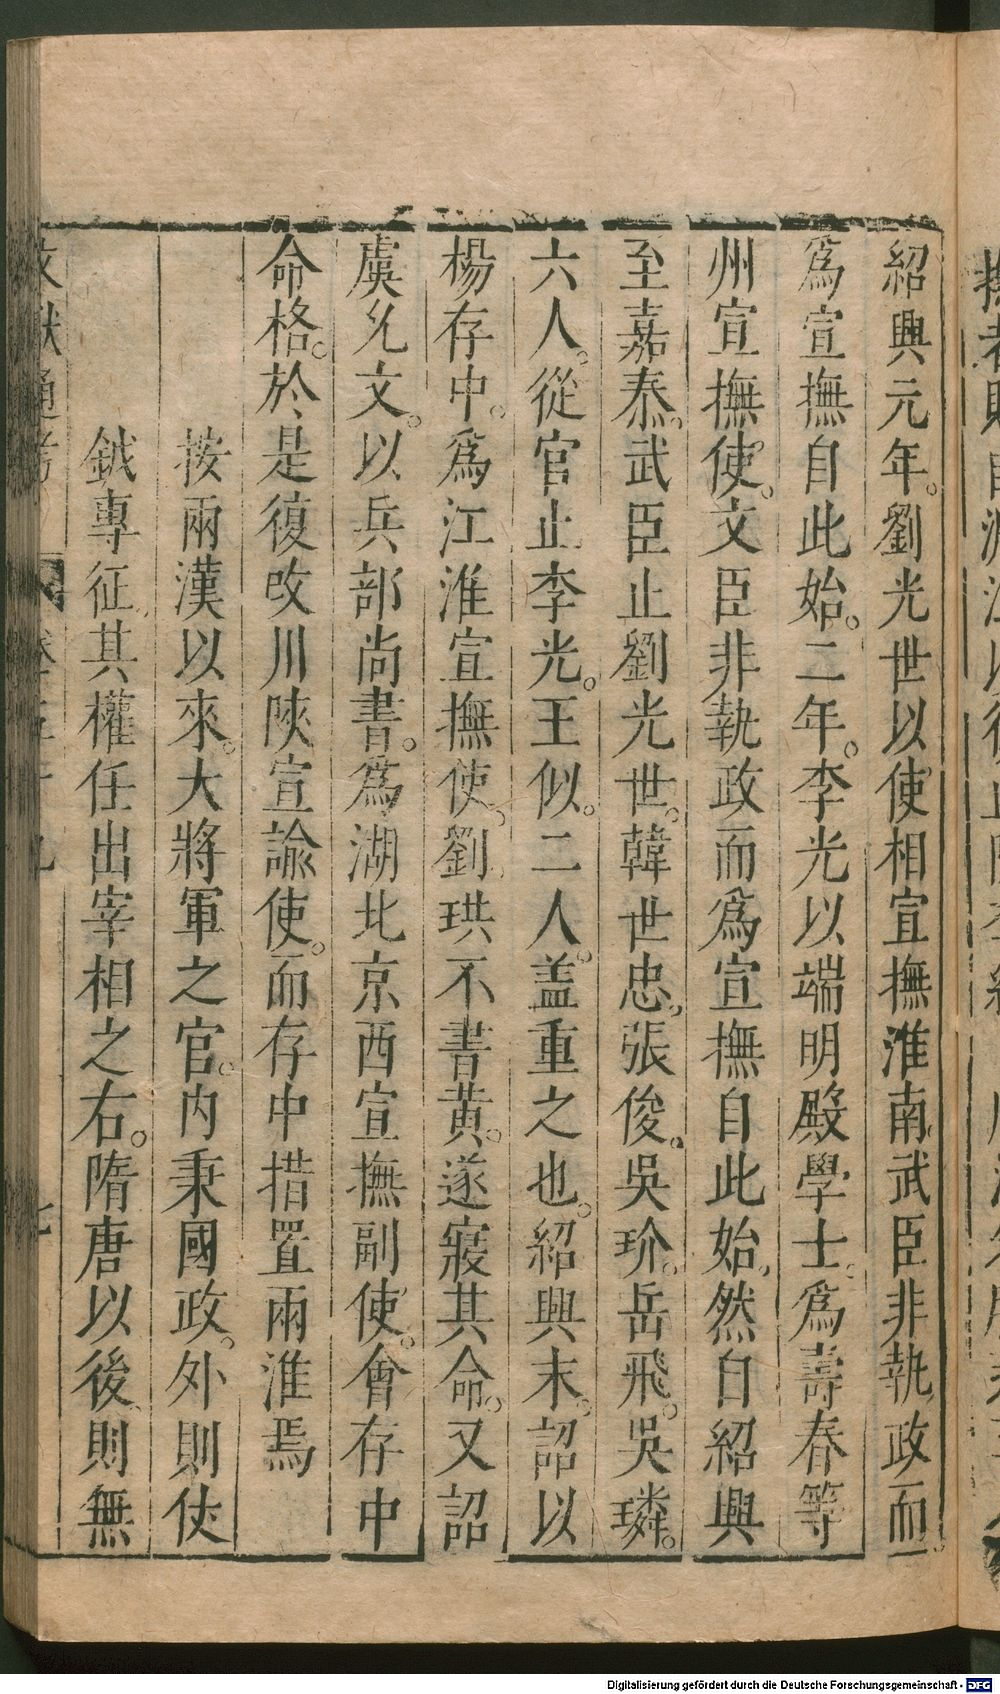 紹興元年。劉光世以使相宣撫淮南。武臣非執政而
爲宣撫自此始。二年。李光以端明殿學士。爲壽春等
州宣撫使。文臣非執政而爲宣撫自此始。然自紹興
至嘉泰。武臣止劉光世。韓世忠。張俊。吳玠。岳飛。吳璘。
六人。從官止李光。王似。二人。盖重之也。紹興末。詔以
楊存中。爲江淮宣撫使。劉珙不書黃。遂寢其命。又詔
虞允文。以兵部尚書。爲湖北京西宣撫副使。會存中
命格。於是復改川陝宣諭使。而存中措置兩淮焉
按兩漢以來。大將軍之官。內秉國政。外則仗
鉞專征。其權任出宰相之右。隋唐以後則無
文獻通考 卷五十九 七
Digitalisierung gefördert durch die Deutsche Forschungsgemeinschaft - DFG